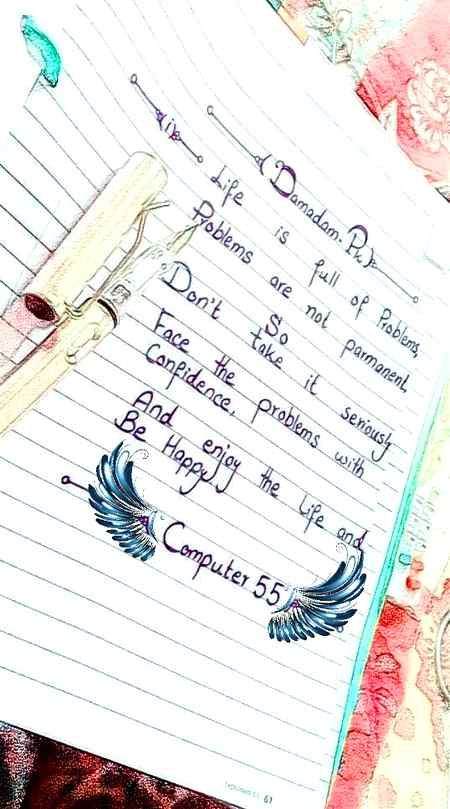 (i)
(Damadam. Pk)
Life is full of Problems,
Problems are not parmanent,
So
Don't take it seriously
Face the problems with
Confidence,
And enjoy the life and
Be Happy
Computer 55
61